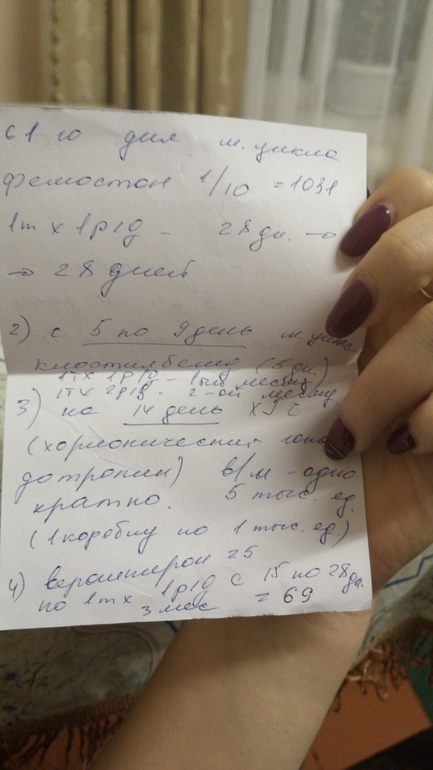 с 1-го дня м. цикла
фемостон 1/10 = 1031
1т х 1р/д - 28 дн. →
→ 28 дней
2) с 5 по 9 день м. цик
клостилбегид (5 дн.)
1т х 1р/д - 1ый месяц
1т х 2р/д - 2-ой месяц
3) на 14 день ХГЧ
(хорионический гона
дотропин) в/м - одно
кратно. 5 тыс. ед.
(1 коробку по 1 тыс. ед.)
4) 25
по 1т х 1р/д с 15 по 28 дн.
3 мес = 69